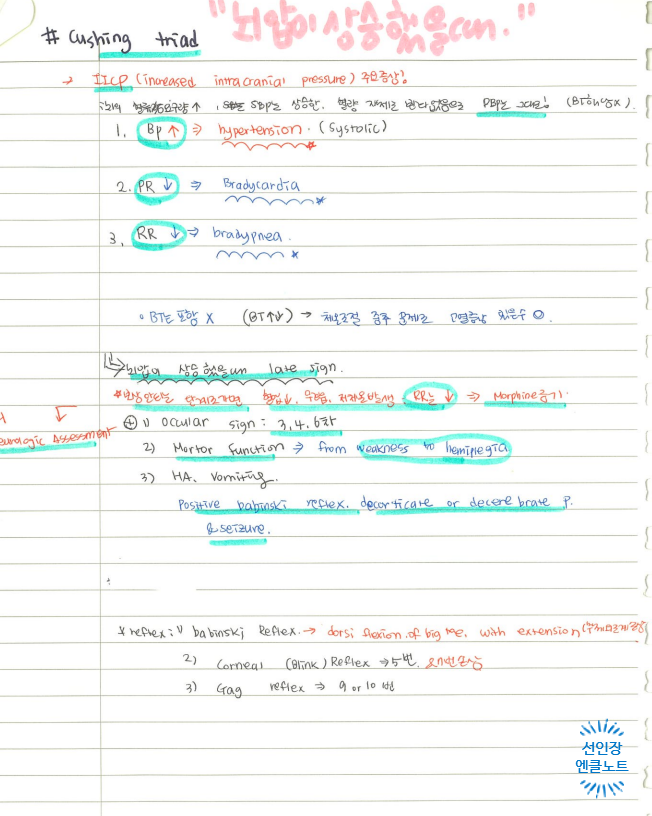 # Cushing triad "뇌압이 상승했을 cun."
→ IICP (increased intracranial pressure) 주요증상!
SBP는 상승한. DBP는 그대로! (BT해당X)
1. Bp ↑ ⇒ hypertension. (Systolic)
2. PR ↓ ⇒ Bradycardia
3. RR ↓ ⇒ bradypnea.
• BT는 포함 X (BT↑↓) → 체온조절 중추 문제로 고열증상 있을수 O.
뇌압이 상승했을 cun late sign.
혈압↓, 무호흡, RR는 ↓ ⇒ Morphine금기.
Neurologic Assessment
⊕ 1) ocular sign: 3, 4, 6차
2) Mortor function ⇒ from weakness to hemiplegia
3) HA, vomiting.
Positive babinski reflex. decorticate or decerebrate p.
& seizure.
* reflex: 1) babinski Reflex. → dorsi flexion of big toe. with extension
2) Corneal (Blink) Reflex ⇒ 5번.
3) Gag reflex ⇒ 9 or 10 번
선인장
엔클노트